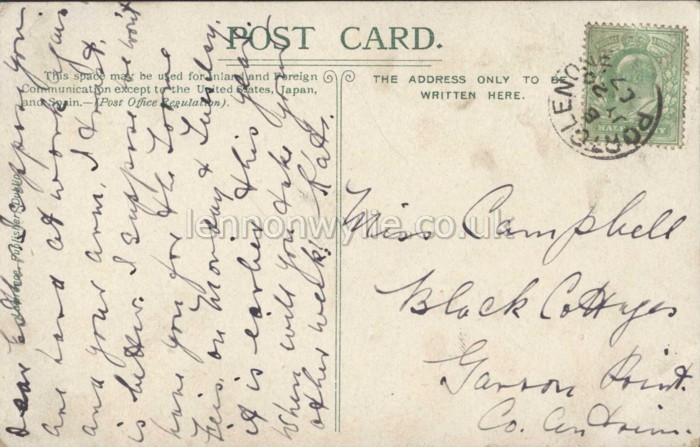 POST CARD.
This space may be used for Inland and Foreign
Communication except to the United States, Japan,
and Spain.—(Post Office Regulation).
THE ADDRESS ONLY TO BE
WRITTEN HERE.
HALFPENNY
PORTGLENONE
JY 20
07
lennonwylie.co.uk
Dear I suppose you
are hard at work again
and your arm, I trust
is better. I suppose we won't
have you for the
on Monday & Tuesday.
it is earlier this year.
When will you take your
other week? Kate.
Miss Campbell
Black Cottages
Garron Point.
Co. Antrim.